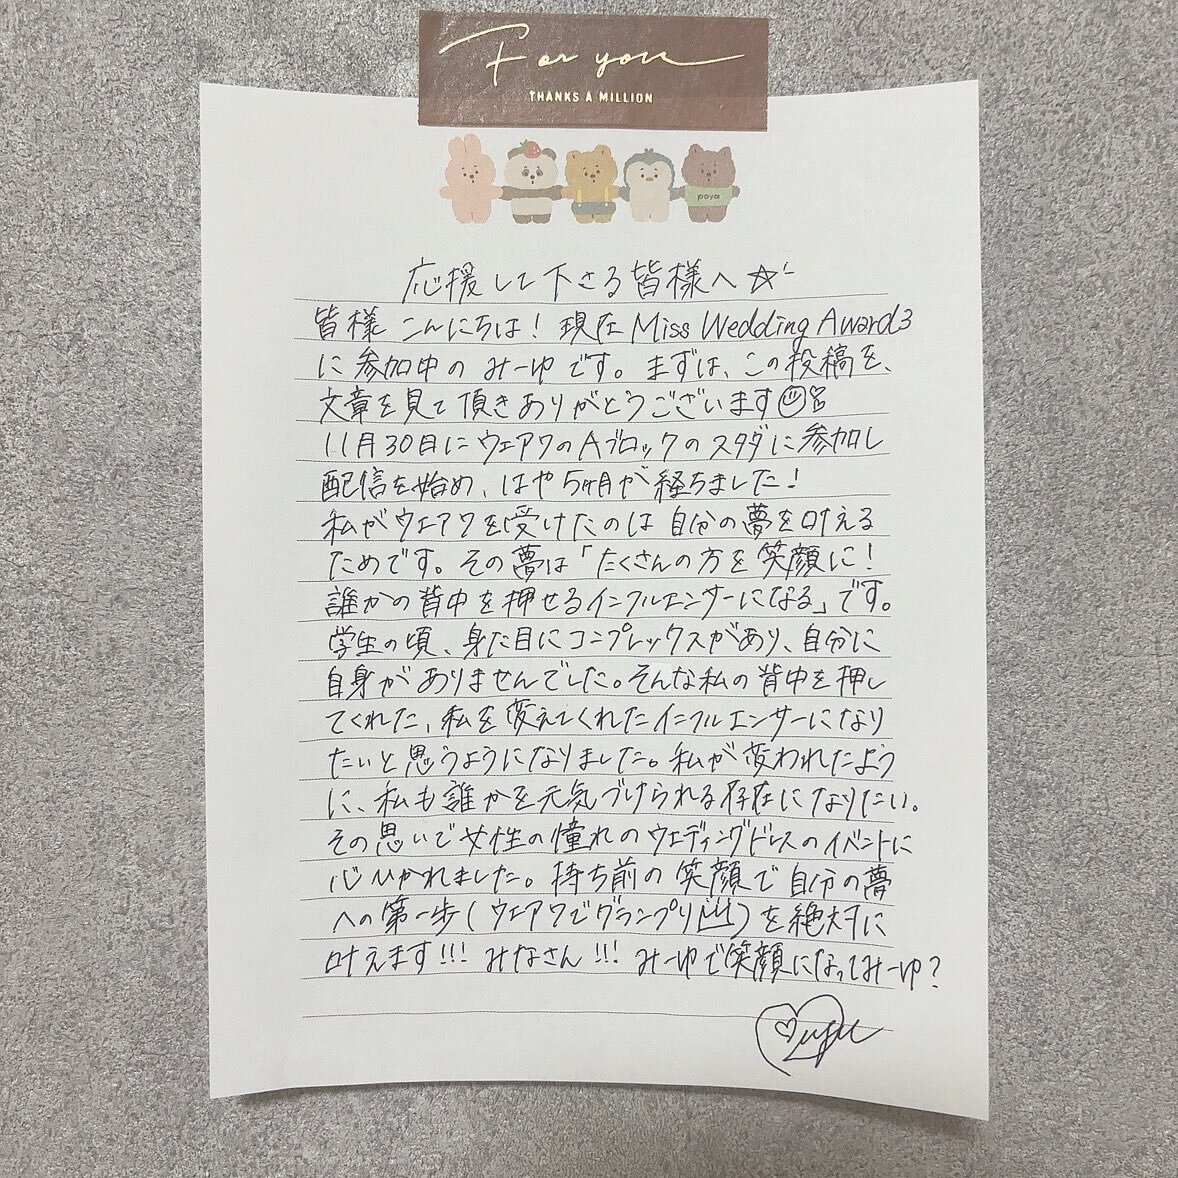 For you
THANKS A MILLION
poya
応援して下さる皆様へ☆
皆様 こんにちは！現在 Miss Wedding Award3
に参加中の みーゆ です。まずは、この投稿を、
文章を見て頂きありがとうございます
11月30日にウェアワのAブロックのスタダに参加し
配信を始め、はや5ヶ月が経ちました！
私がウェアワを受けたのは 自分の夢を叶える
ためです。その夢は「たくさんの方を笑顔に！
誰かの背中を押せるインフルエンサーになる」です。
学生の頃、身た目にコンプレックスがあり、自分に
自身がありませんでした。そんな私の背中を押し
てくれた、私を変えてくれたインフルエンサーになり
たいと思うようになりました。私が変われたよう
に、私も誰かを元気づけられる存在になりたい。
その思いで女性の憧れのウエディングドレスのイベントに
心ひかれました。持ち前の笑顔で自分の夢
への第一歩(ウェアワでグランプリ)を絶対に
叶えます!!! みなさん!!! みーゆで笑顔になってみーゆ？